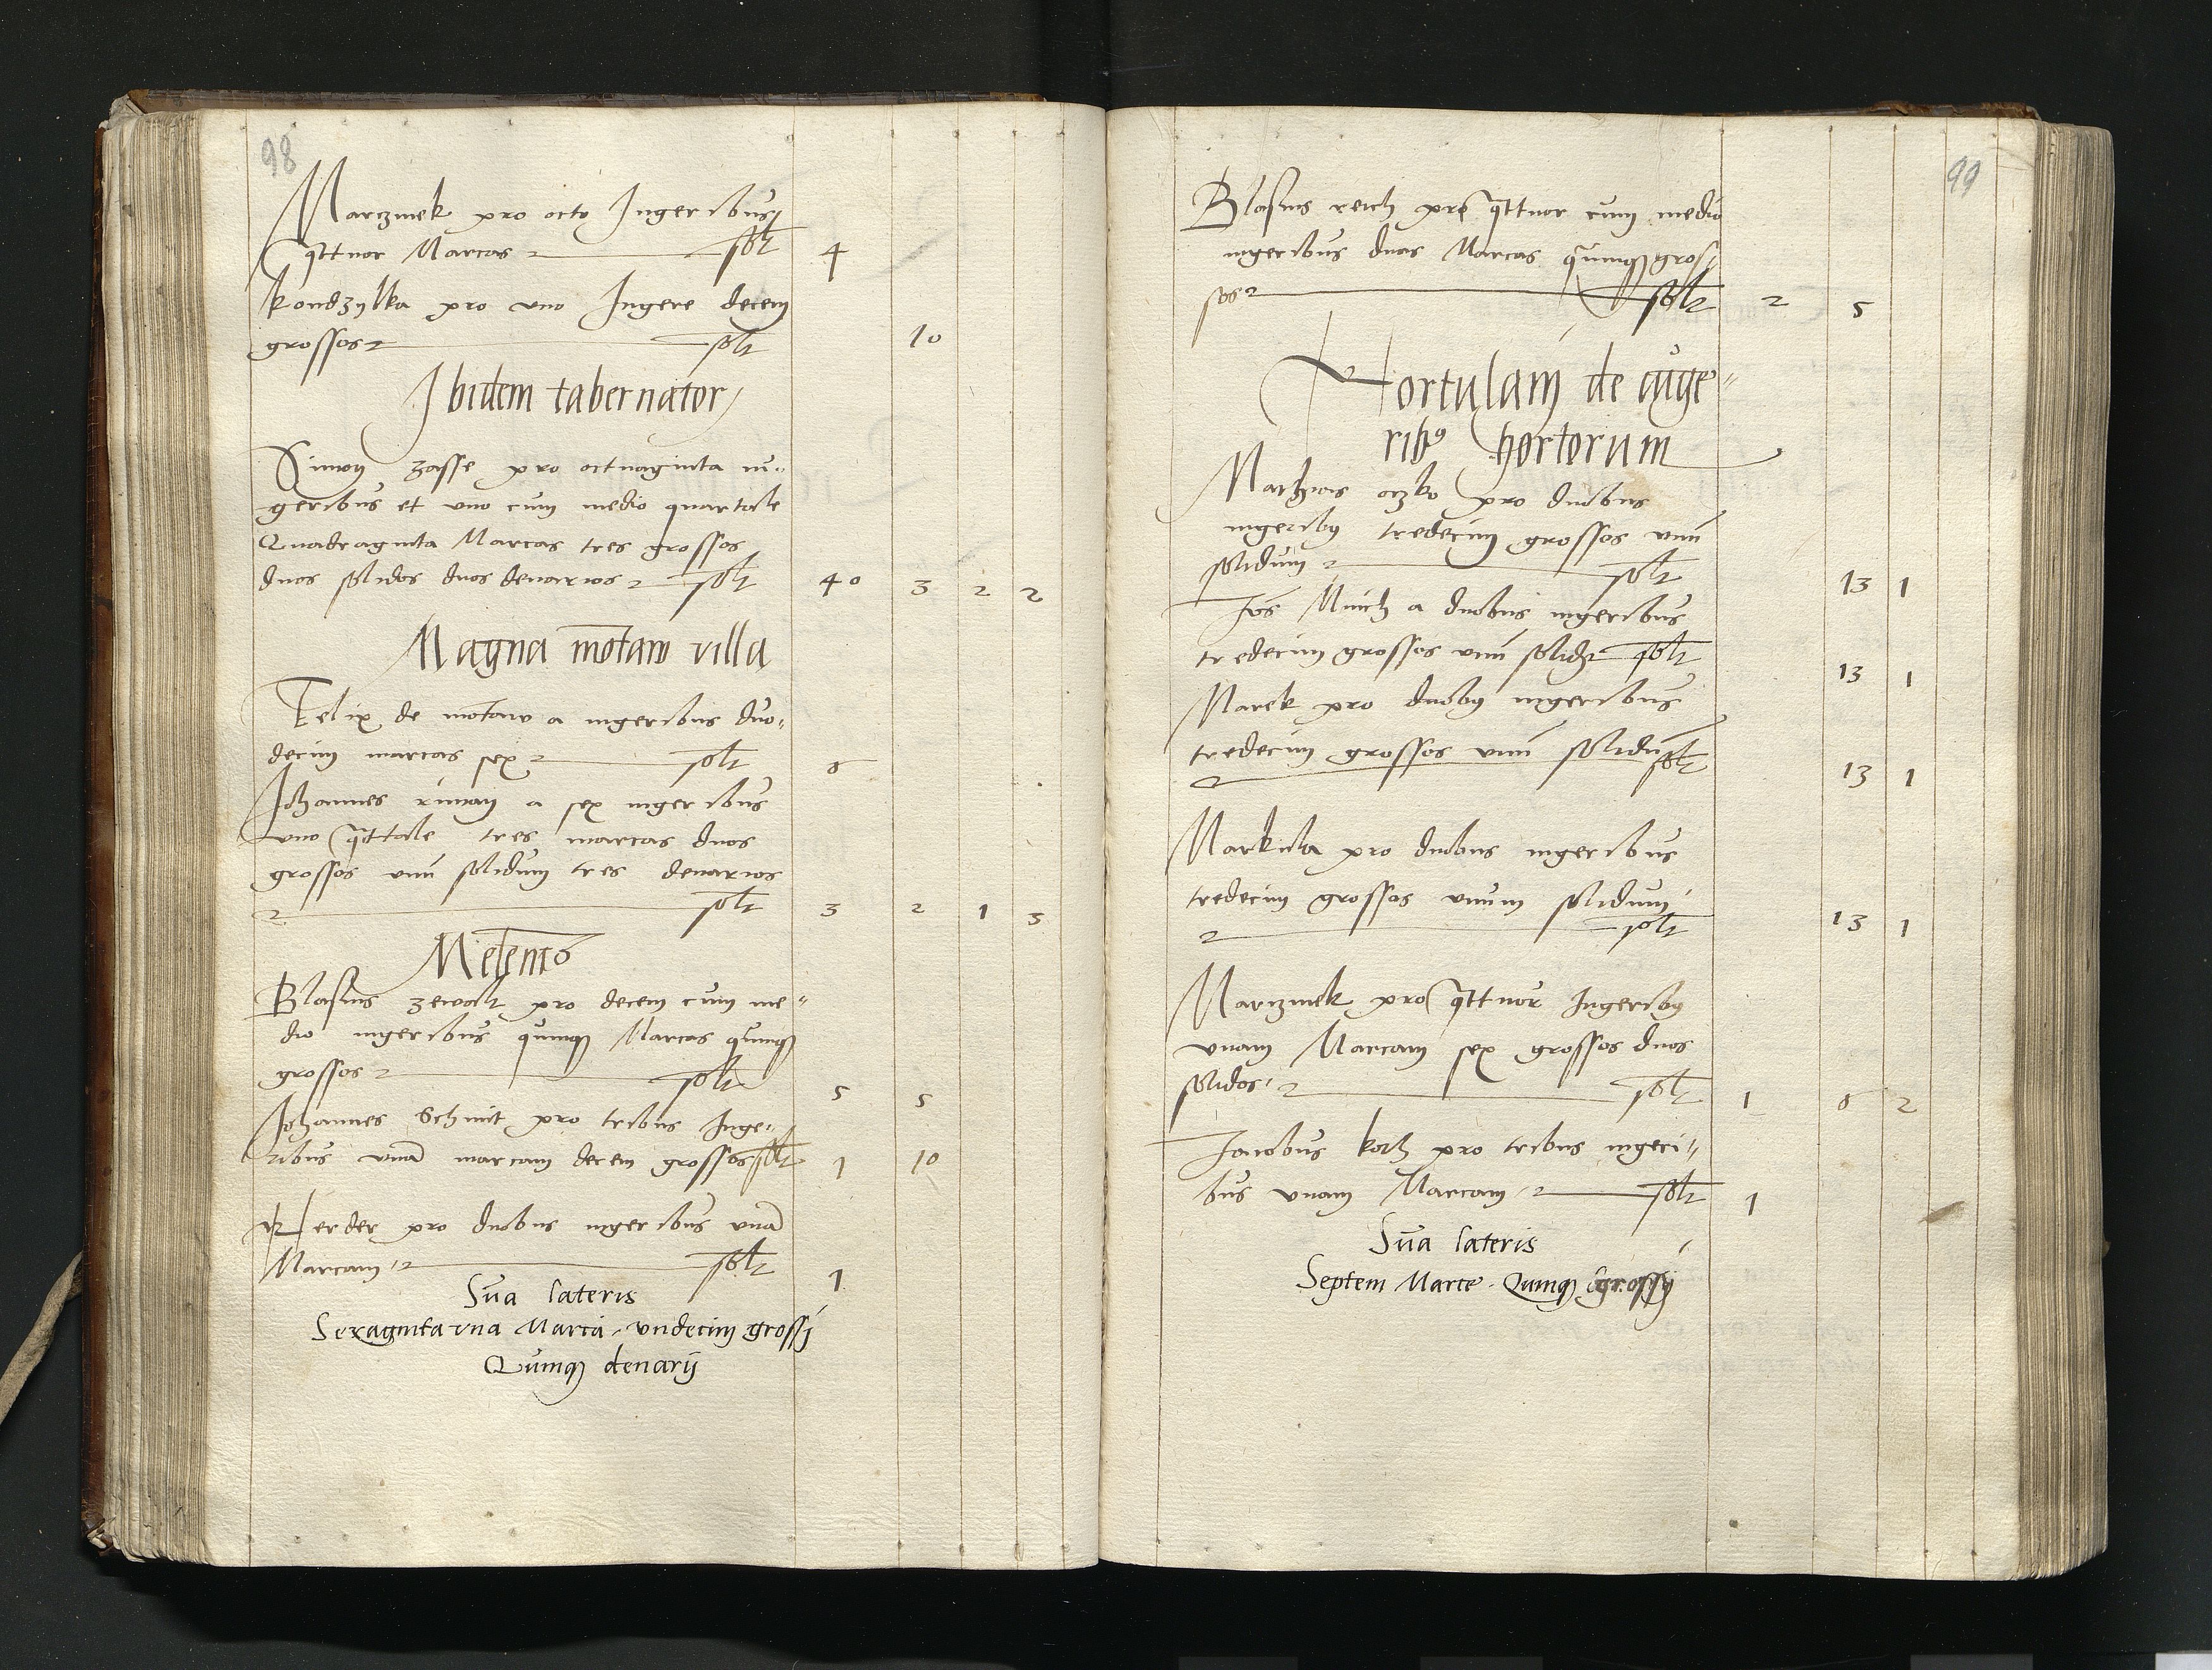 98
Marczinek pro octo Iugeribus
qttuor Marcas solt 4
kondzylka pro uno Iugere decem
grossos solt 10
Ibidem tabernator
Simon zasse pro octuaginta iu„
geribus et uno cum medio quartale
Quadraginta Marcas tres grossos
duos solidos duos denarios solt 40 3 2 2
Magna motaw villa
Felix de motaw a iugeribus duo„
decim marcas sex solt 6
Johannes riman a sex iugeribus
uno qttale tres marcas duos
grossos unū solidum tres denarios
solt 3 2 1 3
Blasius zewalt pro decem cum me„
dio iugeribus quinqz Marcas quinqz
grossos solt 5 5
Johannes Schmit pro tribus Iuge„
ribus unā marcam decem grossos solt 1 10
Herder pro duobus iugeribus unā
Marcam solt 1
Sūa lateris
Sexaginta vna Marca, vndecim grossy
Quinqz denarij
99
Blasius reich pro qttuor cum medio
iugeribus duas Marcas quinqz gros„
sos solt 2 5
Hortulani de iuge„
ribꝰ hortorum
Mathias oczko pro duobus
iugeribꝰ tredecim grossos unū
solidum solt 13 1
Jos Munch a duobus iugeribus
tredecim grossos unū solidz solt 13 1
Marek pro duobꝰ iugeribus
tredecim grossos unū solidū solt
13 1
Markula pro duobus iugeribus
tredecim grossos unum solidum
solt 13 1
Marczinek pro qttuor Iugeribꝰ
unam Marcam sex grossos duos
solidos solt 1 6 2
Jacobus koch pro tribus iugeri„
bus unam Marcam solt 1
Sūa lateris
Septem Marce. Quinqz grossy